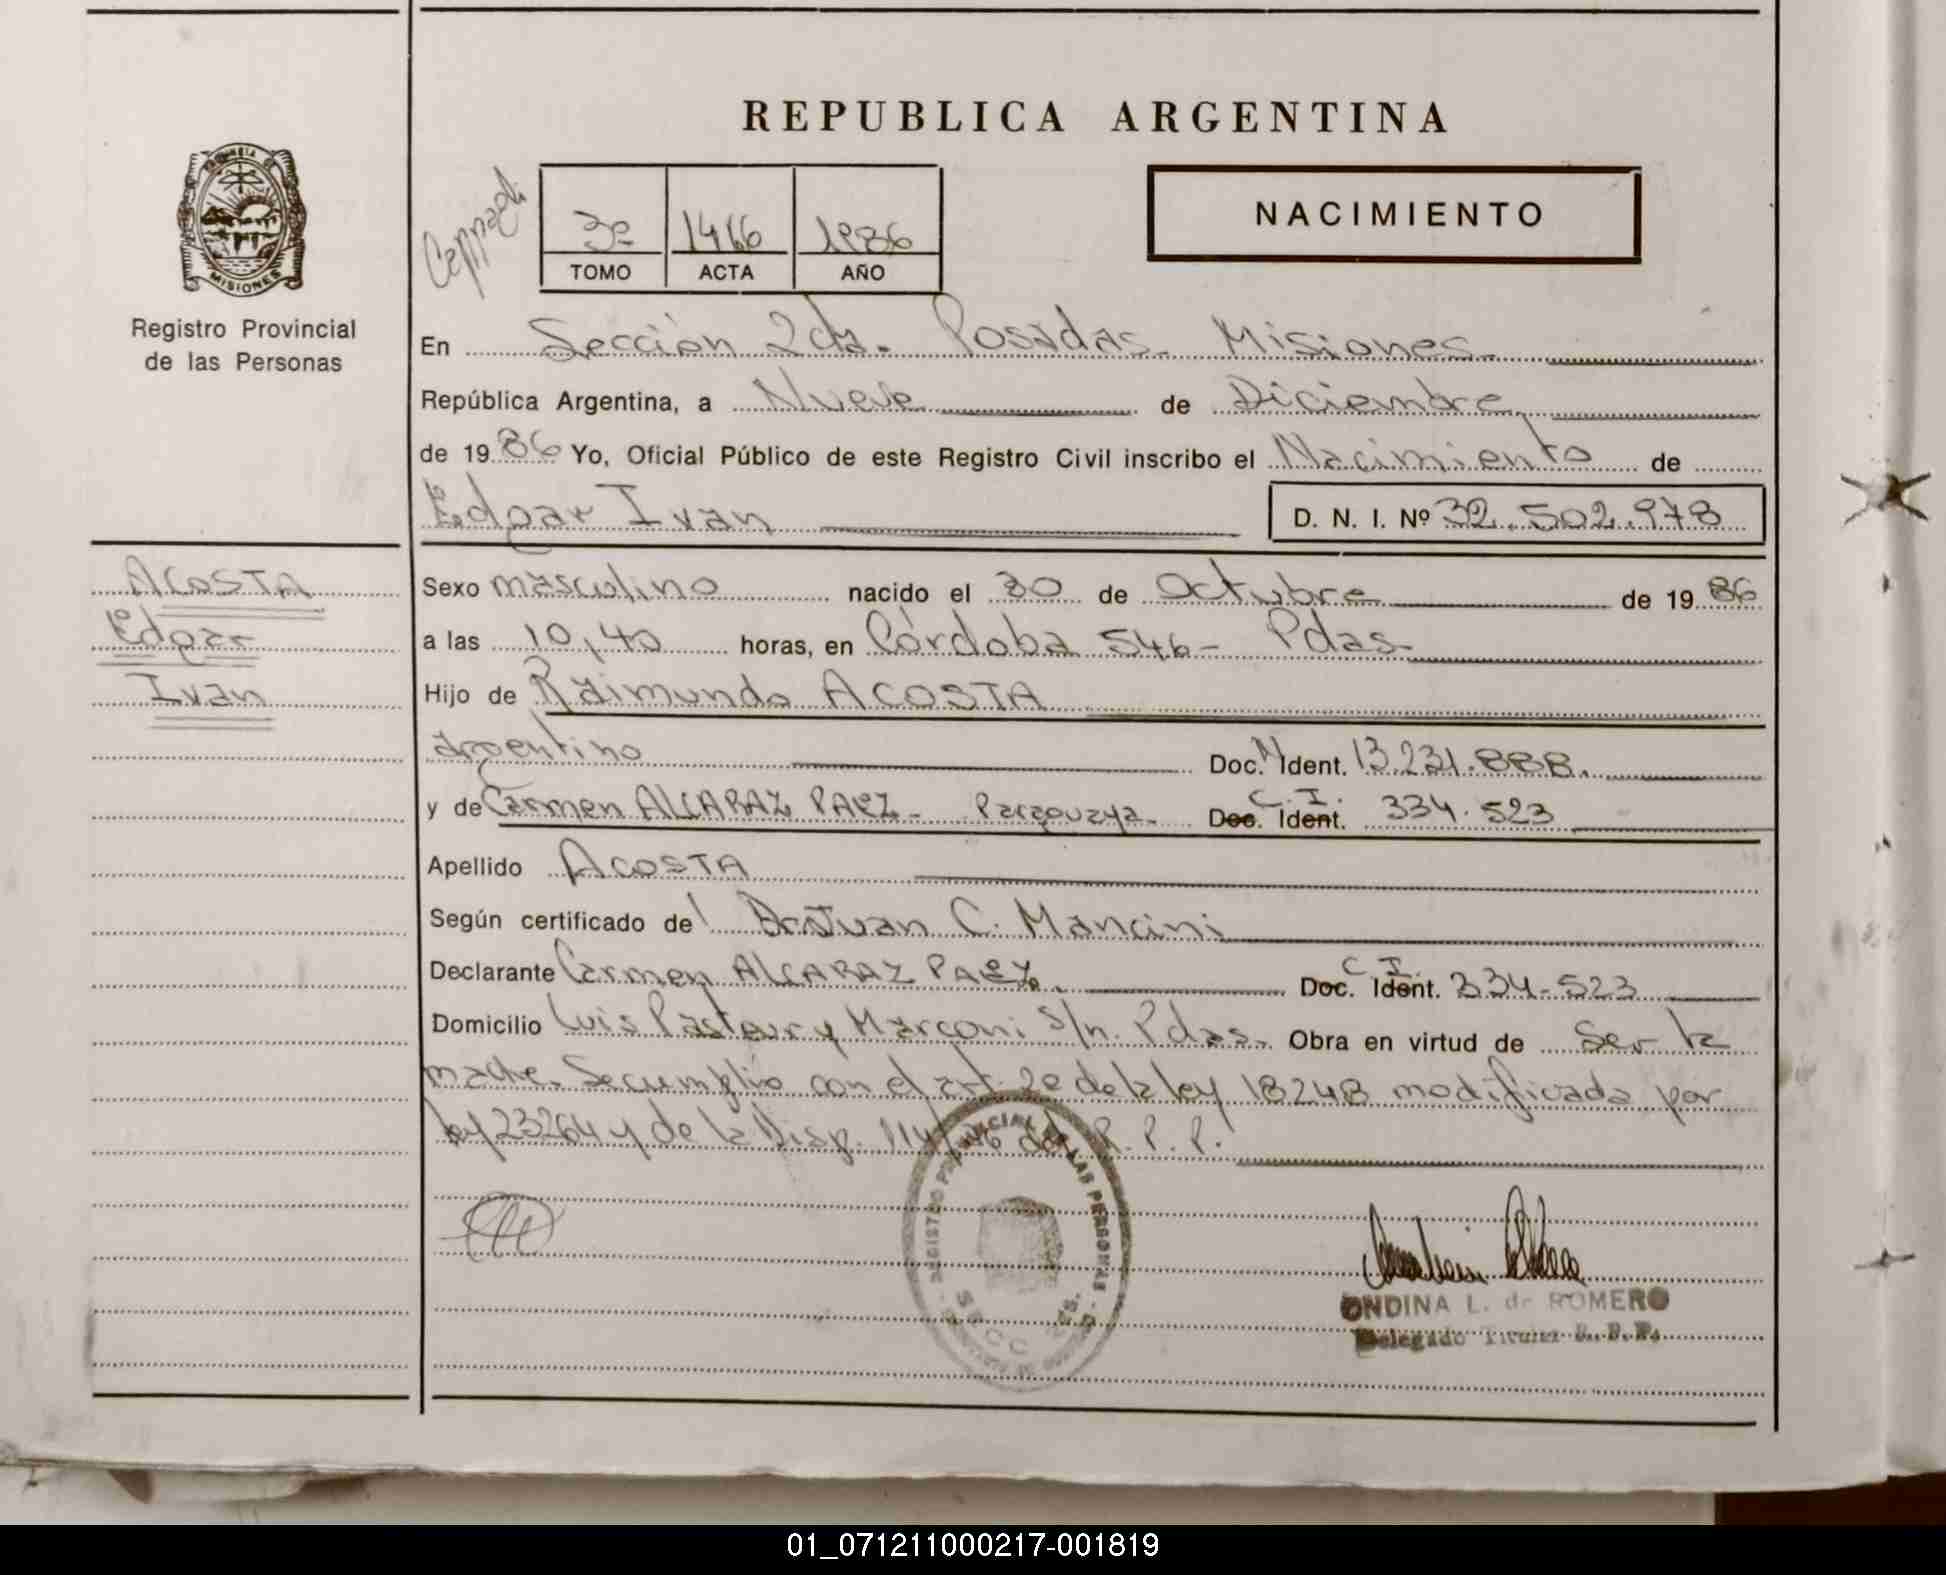 REPUBLICA ARGENTINA
PROVINCIA DE
MISIONES
Registro Provincial
de las Personas
3º 1466 1986
TOMO ACTA AÑO
NACIMIENTO
En Sección 2da. Posadas. Misiones.
República Argentina, a Nueve de Diciembre
de 1986 Yo, Oficial Público de este Registro Civil inscribo el Nacimiento de
Edgar Ivan D. N. I. Nº 32.502.978
ACOSTA
Edgar
Ivan
Sexo masculino nacido el 30 de Octubre de 1986
a las 10,40 horas, en Córdoba 546- Pdas.
Hijo de Raimundo ACOSTA
argentino Doc. N Ident. 13.231.888.
y de Carmen ALCARAZ PAEZ - Paraguaya. C. I. Doc. Ident. 334.523
Apellido ACOSTA
Según certificado de Dr. Juan C. Mancini
Declarante Carmen ALCARAZ PAEZ. C. I. Doc. Ident. 334-523
Domicilio Luis Pasteur y Marconi s/n. Pdas. Obra en virtud de Ser la
madre. Se cumplió con el art. 2º de la ley 18248 modificada por
ley 23264 y de la Disp. 114/ del R. P. P.
REGISTRO PROVINCIAL DE LAS PERSONAS
SECC
ONDINA L. de ROMERO
Delegado Titular R. P. P.
01_071211000217-001819